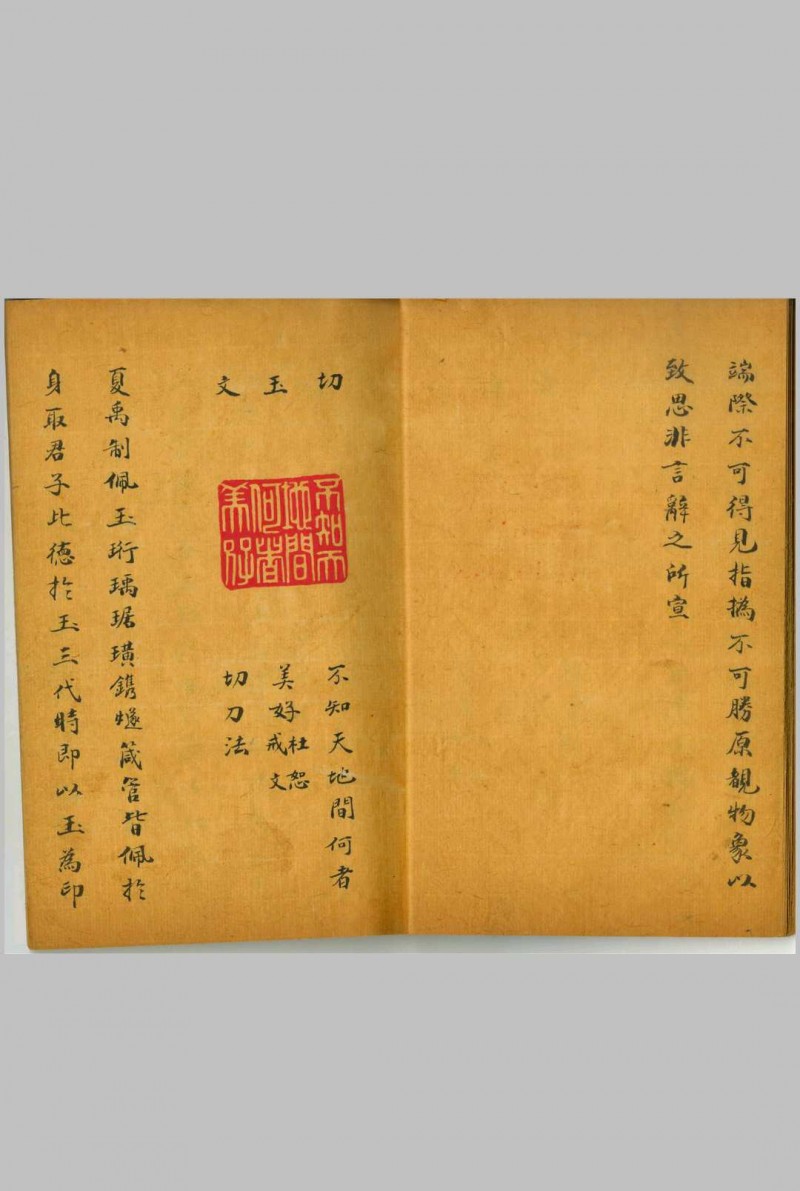 端際不可得見指撝不可勝原覩物象以
致思非言辭之所宣
切玉文
不知天
地間
何者
美好
不知天地間何者
美好杜恕
戒文
切刀法
夏禹制佩玉珩瑀琚璜鐫燧箴管皆佩於
身取君子比德於玉三代時即以玉為印